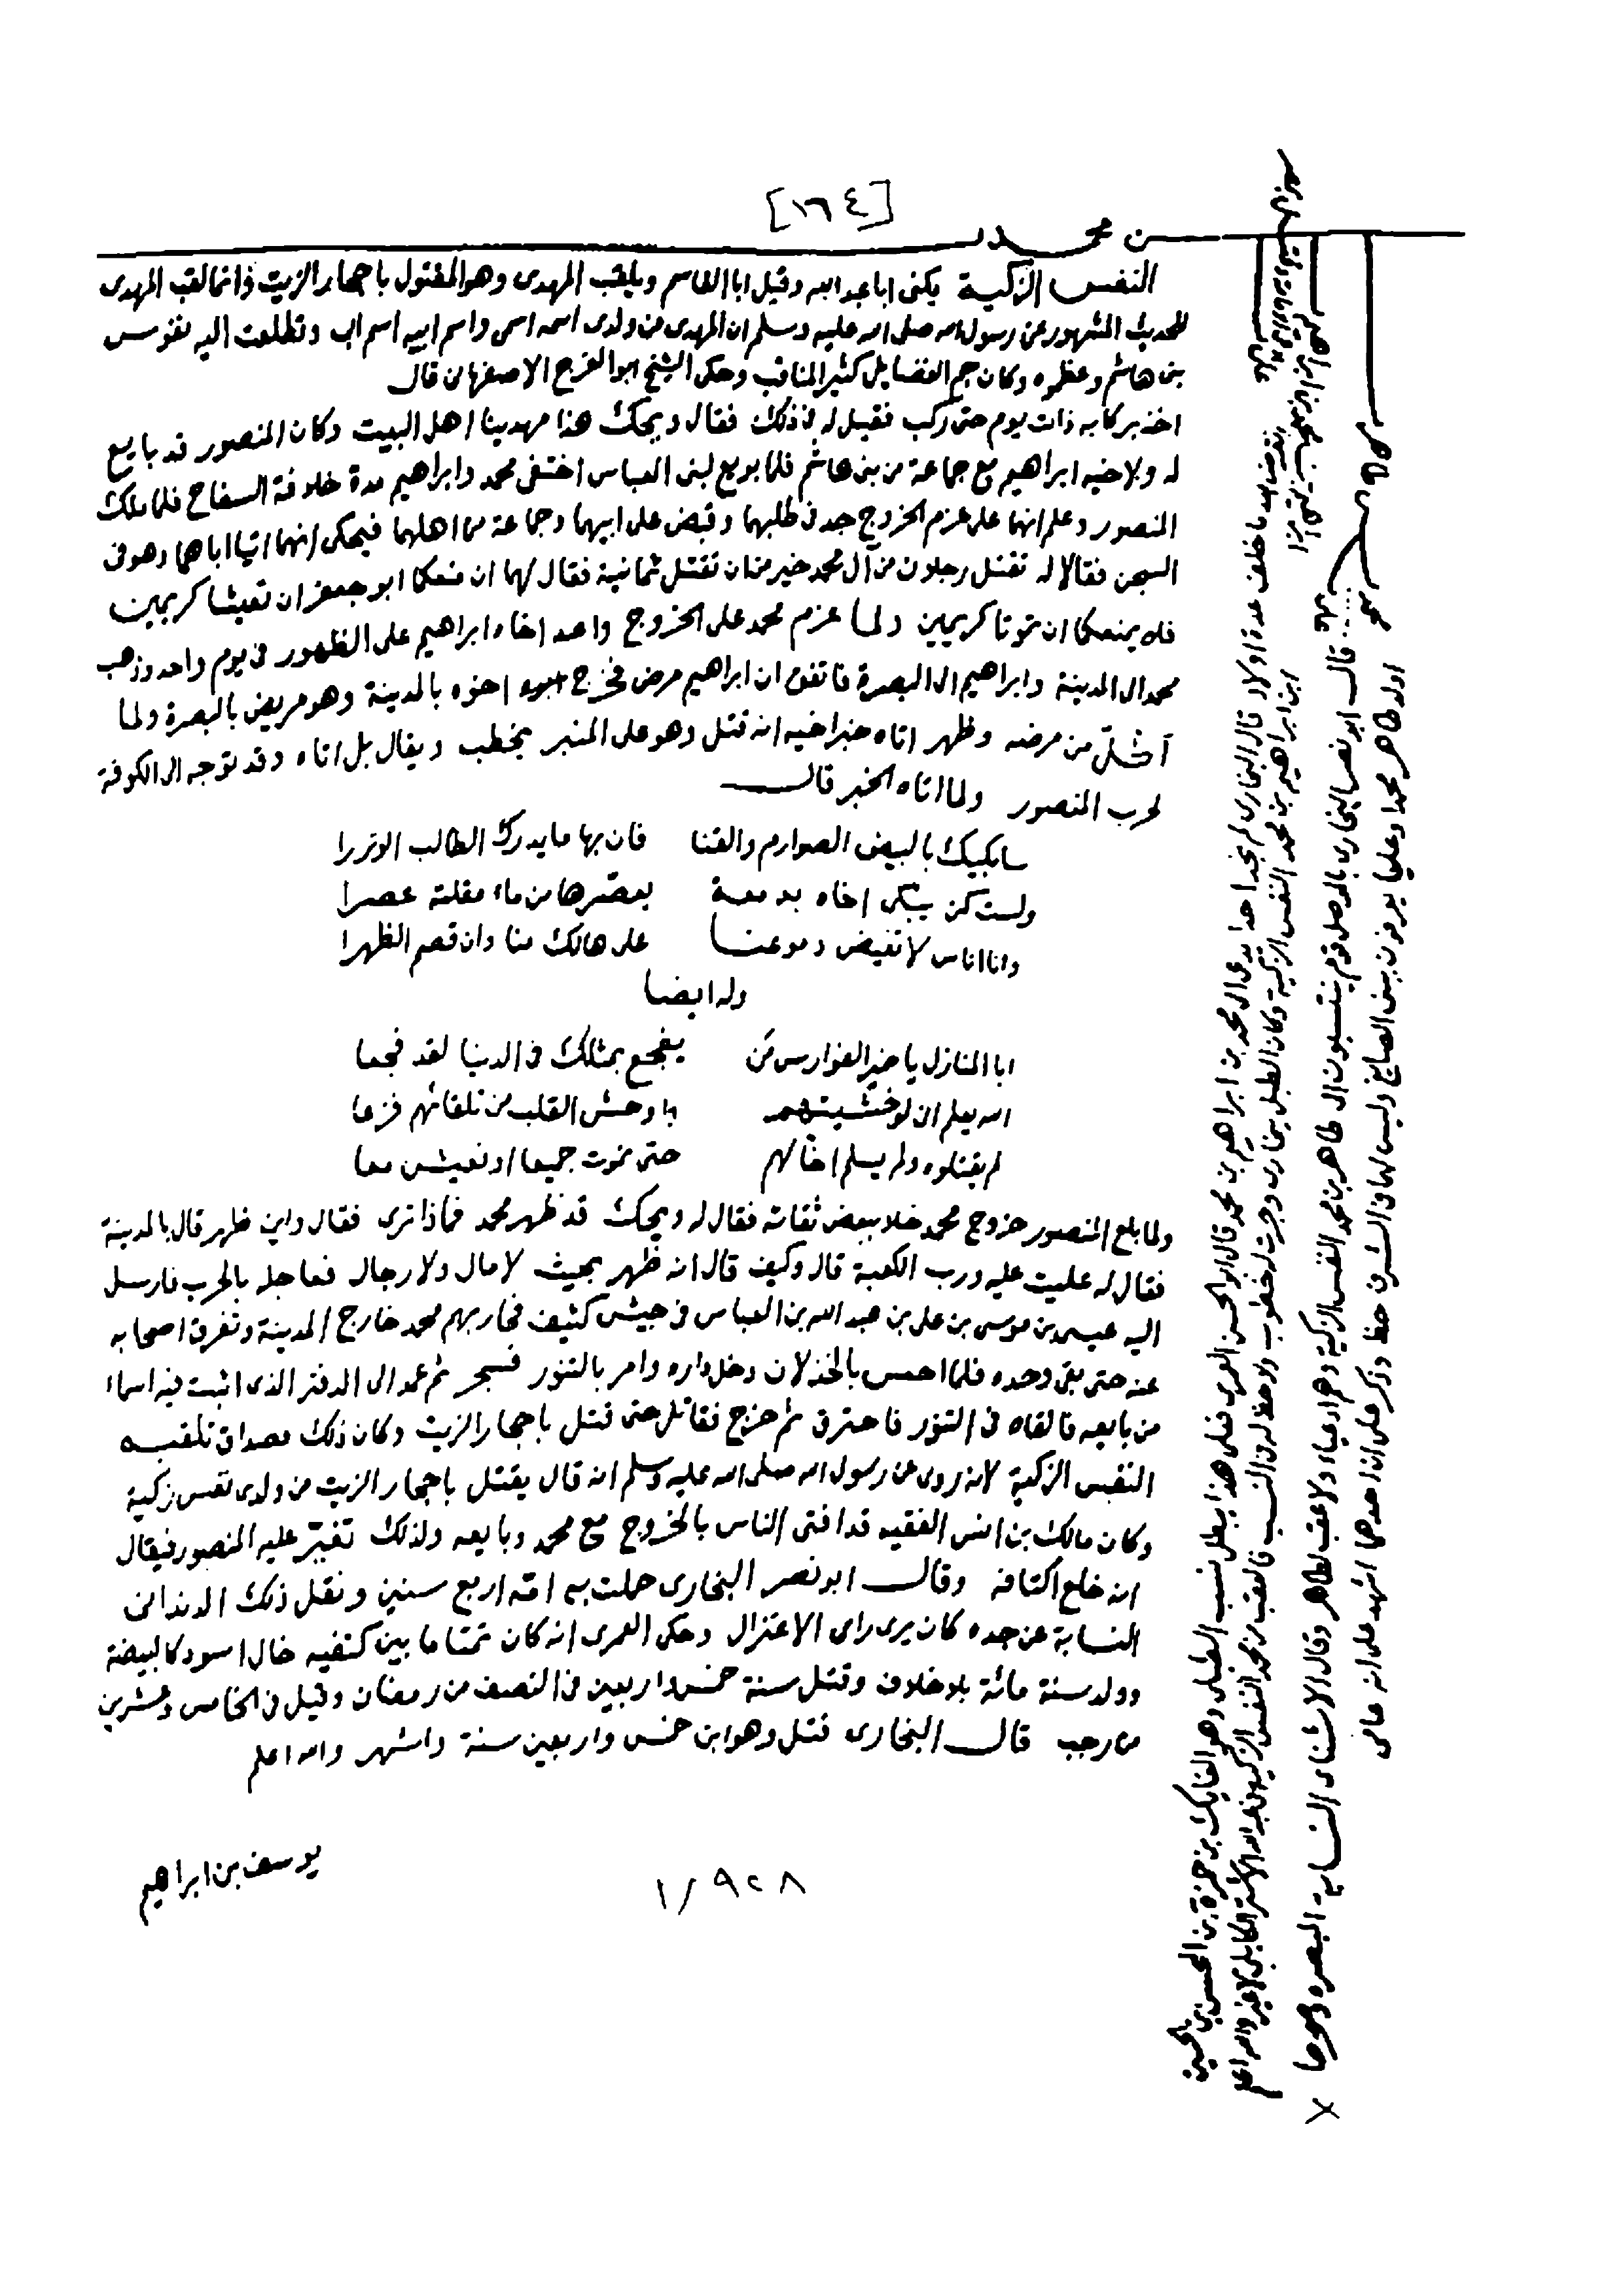 [١٦٤]
بن محمد
النفس الزكية يكنى ابا عبد الله وقيل ابا القاسم ويلقب المهدى وهو المقتول باحجار الزيت وانما لقب المهدى
للحديث المشهور عن رسول الله صلى الله عليه وسلم ان المهدى من ولدى اسمه اسمى واسم ابيه اسم ابى وتطلعت اليه نفوس
بنى هاشم وعظموه وكان جم الفضايل كثير المناقب وحكى الشيخ ابو الفرج الاصفهانى قال
اخذ بركابه ذات يوم حتى ركب فقيل له فى ذلك فقال ويحك هذا مهدينا اهل البيت وكان المنصور قد بايع
له ولاخيه ابراهيم مع جماعة من بنى هاشم فلما بويع لبنى العباس اختفى محمد وابراهيم مدة خلافة السفاح فلما ملك
المنصور وعلم انهما على عزم الخروج جد فى طلبهما وقبض على ابيهما وجماعة من اهلهما فيحكى انهما اتيا اباهما وهو فى
السجن فقالا له تقتل رجلان من آل محمد خير من ان تقتل ثمانية فقال لهما ان منعكما ابو جعفر ان تعيشا كريمين
فلا يمنعكما ان تموتا كريمين ولما عزم محمد على الخروج واعد اخاه ابراهيم على الظهور فى يوم واحد وذهب
محمد الى المدينة وابراهيم الى البصرة فاتفق ان ابراهيم مرض فخرج اخوه بالمدينة وهو مريض بالبصرة ولما
ابل من مرضه وظهر اتاه خبر اخيه انه قتل وهو على المنبر يخطب ويقال بل اتاه وقد توجه الى الكوفة
لحرب المنصور ولما اتاه الخبر قال
سابكيك بالبيض الصوارم والقنا فان بها ما يدرك الطالب الوترا
ولست كمن يبكى اخاه بدمعة يعصرها من ماء مقلته عصرا
وانا اناس لا تفيض دموعنا على هالك منا وان قصم الظهرا
وله ايضا
ابا المنازل يا خير الفوارس من يفجع بمثلك فى الدنيا لقد فجعا
الله يعلم انى لو خشيتهم او اوحش القلب من تلقائهم فزعا
لم يقتلوه ولم يسلم اخالهم حتى نموت جميعا او نعيش معا
ولما بلغ المنصور خروج محمد خلا ببعض ثقاته فقال له ويحك قد ظهر محمد فماذا ترى فقال واين ظهر قال بالمدينة
فقال له غلبت عليه ورب الكعبة قال وكيف قال انه ظهر بحيث لا مال ولا رجال فعاجله بالحرب فارسل
اليه عيسى بن موسى بن على بن عبد الله بن العباس فى جيش كثيف فحاربهم محمد خارج المدينة وتفرق اصحابه
عنه حتى بقى وحده فلما احس بالخذلان دخل داره وامر بالتنور فسجر ثم عمد الى الدفتر الذى اثبت فيه اسماء
من بايعه فالقاه فى التنور فاحترق ثم خرج فقاتل حتى قتل باحجار الزيت وكان ذلك مصداق تلقيبه
النفس الزكية لانه روى عن رسول الله صلى الله عليه وسلم انه قال يقتل باحجار الزيت من ولدى نفس زكية
وكان مالك بن انس الفقيه قد افتى الناس بالخروج مع محمد وبايعه ولذلك تغير عليه المنصور فيقال
انه خلع اكتافه وقال ابو نصر البخارى حملت به امه اربع سنين ونقل ذلك الدندانى
النسابة عن جده كان يرى راى الاعتزال وحكى العمرى انه كان تمتاما بين كتفيه خال اسود كالبيضة
وولد سنة مائة بلا خلاف وقتل سنة خمس واربعين فى النصف من رمضان وقيل فى الخامس وعشرين
من رجب قال البخارى قتل وهو ابن خمس واربعين سنة واشهر والله اعلم
انقرض بعد ما خلف عدة اولاد قال البخارى لم نجد احدا يدعى الى محمد بن ابراهيم بن محمد قال ابو الحسن العمرى فعلى هذا يبطل نسب الطبل وهو الفايك بن حمزة بن الحسن بن الحسين
ابن ابراهيم بن محمد النفس الزكية وكان الطبل ببخارى وجرت له خطوب ولا حظ له فى النسب فالعقب من محمد النفس الزكية من عبد الله الاشتر الكابلى لا غير والله اعلم
قال ابو نصر البخارى بالموصل قوم ينتسبون الى طاهر بن محمد النفس الزكية وهم ادعياء ولا عقب لطاهر وقال الاشنانى النسابة البصرى
اولد طاهر محمدا وعليا يعرفون ببنى الصايغ وليس لهما فى الشرف حظ وذكر على ان احدهما اشهد على انه عامى
١/٩٢٨
يوسف بن ابراهيم